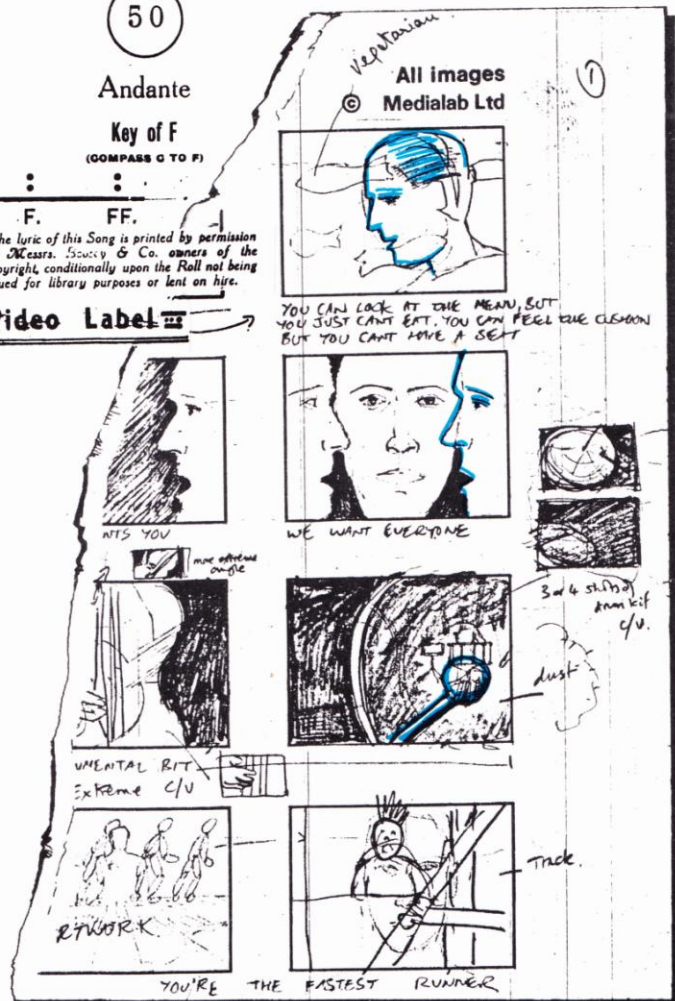 50
Andante
Key of F
(COMPASS C TO F)
F. FF.
he lyric of this Song is printed by permission
Messrs. & Co. owners of the
pyright, conditionally upon the Roll not being
ued for library purposes or lent on hire.
ideo Label
vegetarian
All images
© Medialab Ltd
1
YOU CAN LOOK AT THE MENU, BUT
YOU JUST CANT EAT. YOU CAN FEEL THE CUSHION
BUT YOU CANT HAVE A SEAT
NTS YOU
WE WANT EVERYONE
more extreme
angle
3 or 4 shots of
drum kit
C/U.
dust
UMENTAL BIT
Extreme C/U
RTWORK
Track.
YOU'RE THE FASTEST RUNNER